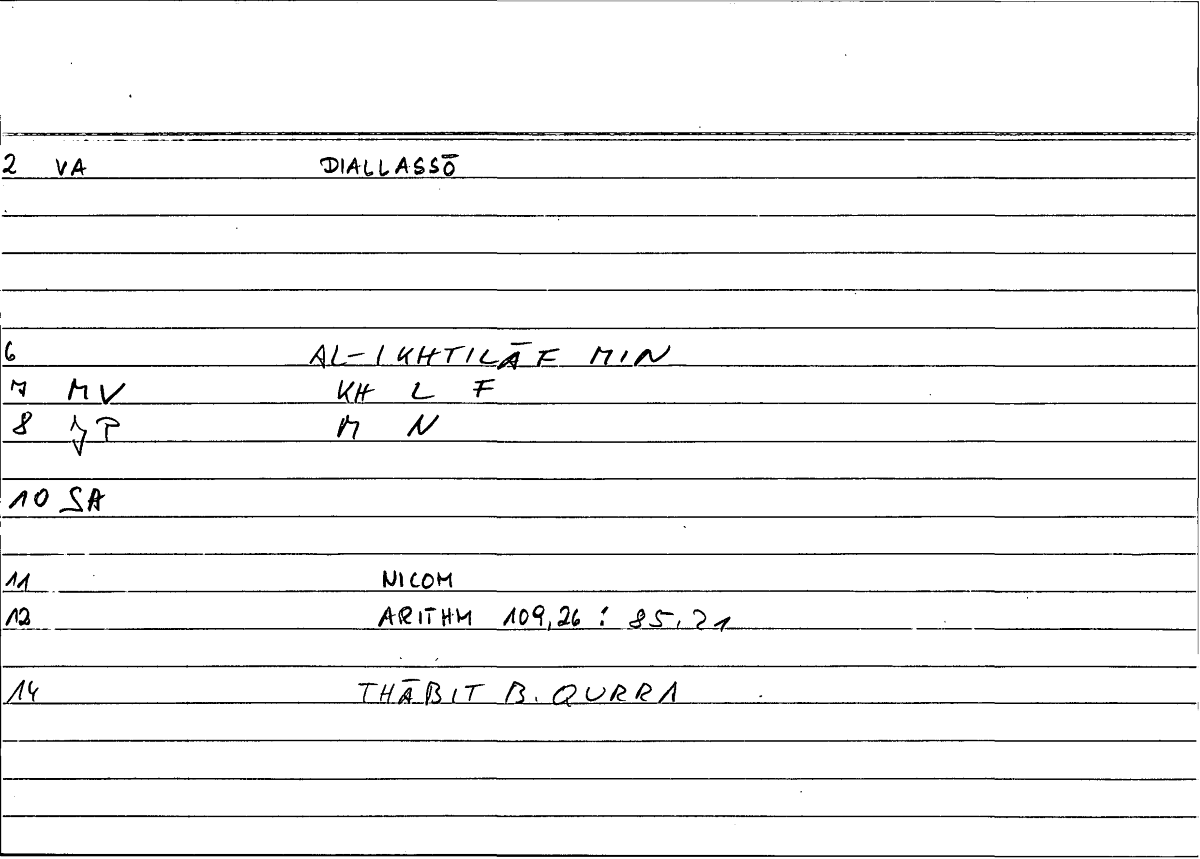 2 VA DIALLASSŌ
6 AL-IKHTILĀF MIN
7 MV KH L F
8 P M N
10 SA
11 NICOM
12 ARITHM 109,26 : 85,21
14 THĀBIT B. QURRA